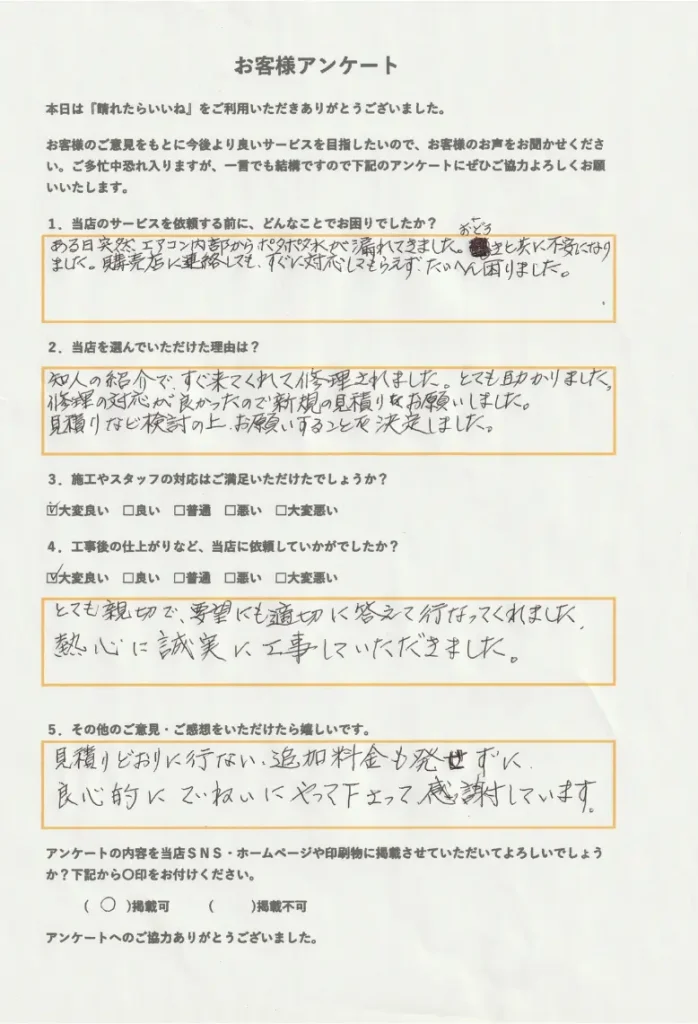 お客様アンケート
本日は『晴れたらいいね』をご利用いただきありがとうございました。
お客様のご意見をもとに今後より良いサービスを目指したいので、お客様のお声をお聞かせくださ
い。ご多忙中恐れ入りますが、一言でも結構ですので下記のアンケートにぜひご協力よろしくお願
いいたします。
1．当店のサービスを依頼する前に、どんなことでお困りでしたか？
おどろ
ある日突然、エアコン内部からポタポタ水が漏れてきました。きと共に不安になり
ました。購売店に連絡しても、すぐに対応してもらえず、たいへん困りました。
2．当店を選んでいただけた理由は？
知人の紹介で、すぐ来てくれて修理されました。とても助かりました。
修理の対応が良かったので新規の見積りをお願いしました。
見積りなど検討の上、お願いすることを決定しました。
3．施工やスタッフの対応はご満足いただけたでしょうか？
☑大変良い □良い □普通 □悪い □大変悪い
4．工事後の仕上がりなど、当店に依頼していかがでしたか？
☑大変良い □良い □普通 □悪い □大変悪い
とても親切で、要望にも適切に答えて行なってくれました、
熱心に誠実に工事していただきました。
5．その他のご意見・ご感想をいただけたら嬉しいです。
見積りどおりに行ない、追加料金も発せずに
良心的にていねいにやって下さって、感謝しています。
アンケートの内容を当店ＳＮＳ・ホームページや印刷物に掲載させていただいてよろしいでしょう
か？下記から〇印をお付けください。
( ○ )掲載可 ( )掲載不可
アンケートへのご協力ありがとうございました。